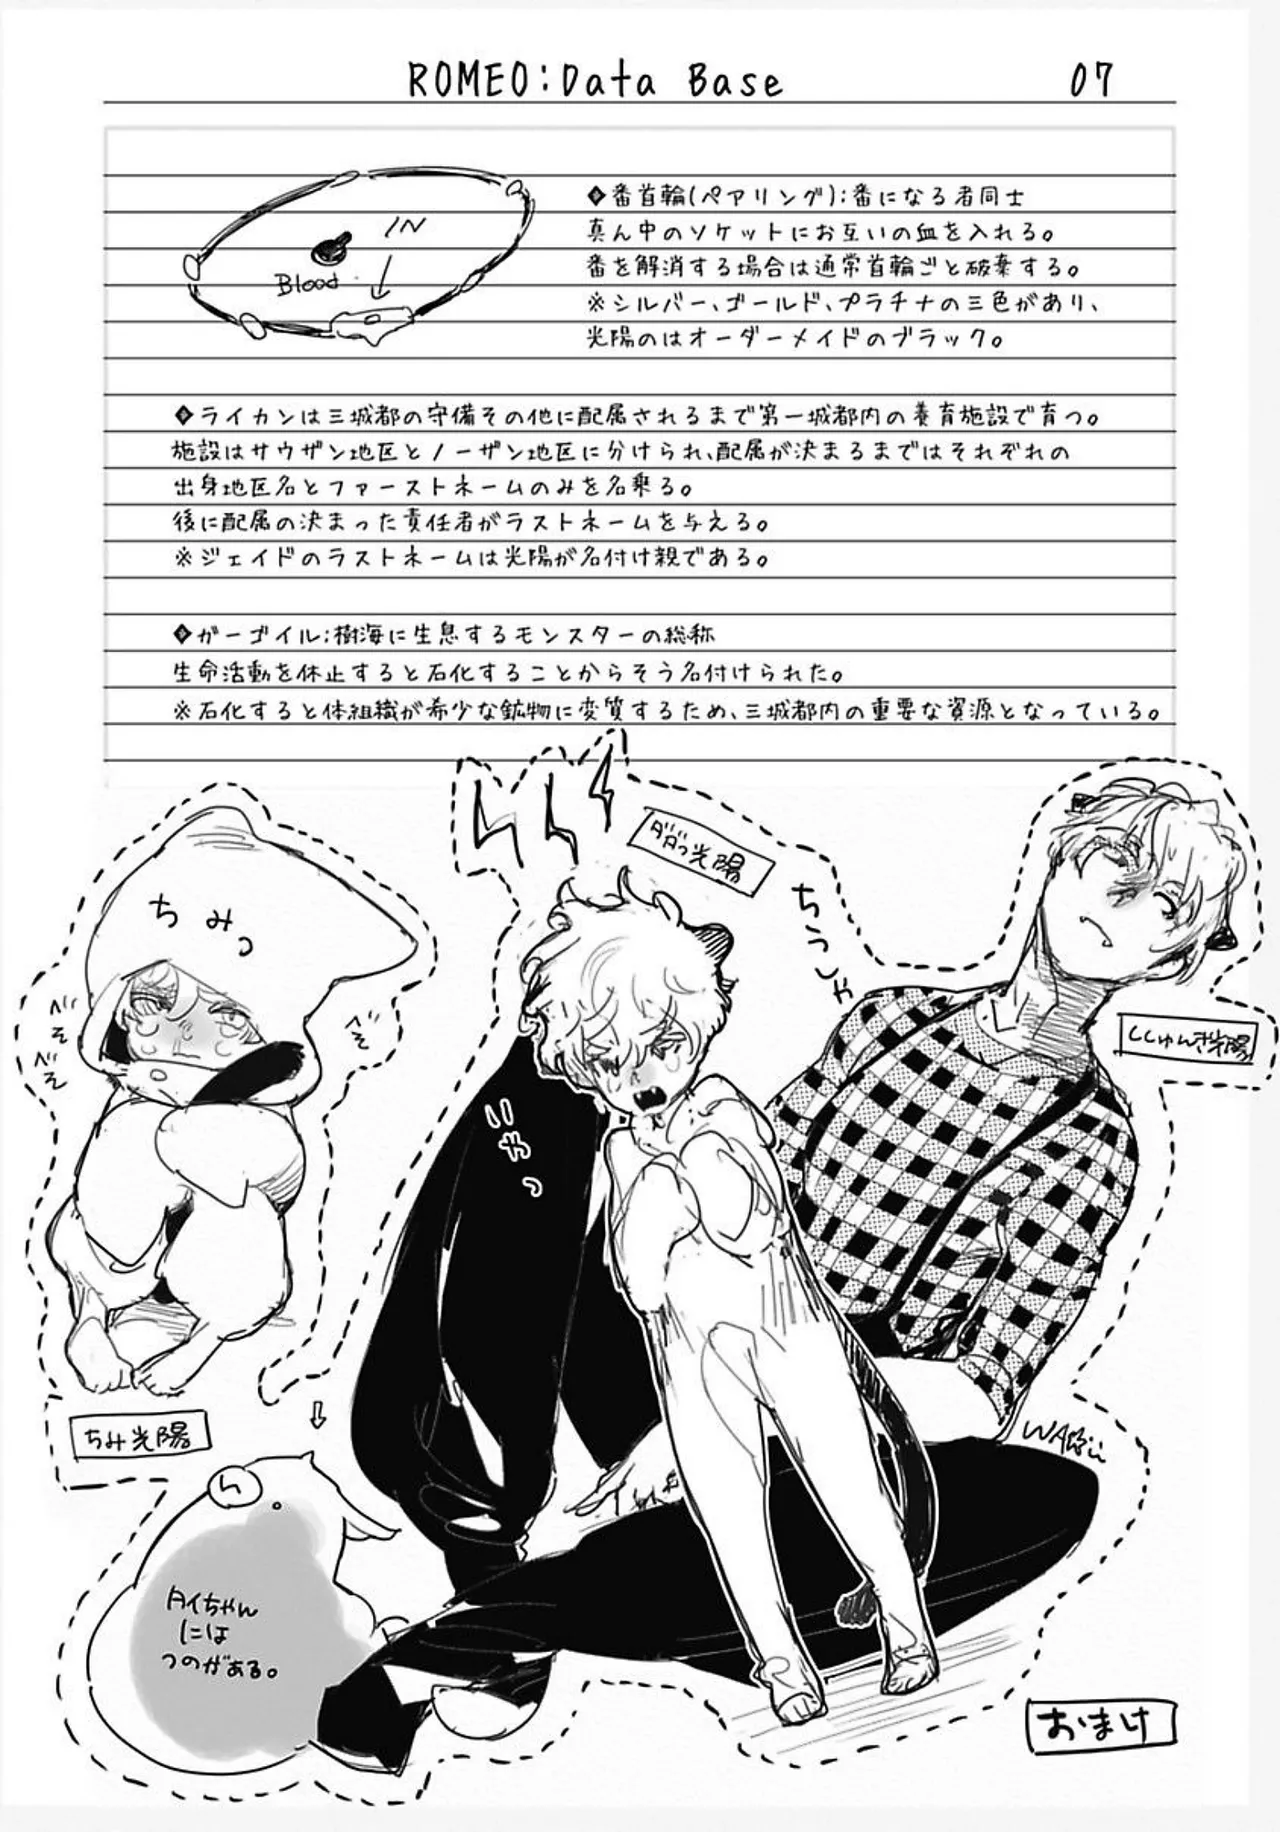 ROMEO:Data Base
07
IN
Blood
◆番首輪(ペアリング):番になる者同士
真ん中のソケットにお互いの血を入れる。
番を解消する場合は通常首輪ごと破棄する。
※シルバー、ゴールド、プラチナの三色があり、
光陽のはオーダーメイドのブラック。
◆ライカンは三城都の守備その他に配属されるまで第一城都内の養育施設で育つ。
施設はサウザン地区とノーザン地区に分けられ、配属が決まるまではそれぞれの
出身地区名とファーストネームのみを名乗る。
後に配属の決まった責任者がラストネームを与える。
※ジェイドのラストネームは光陽が名付け親である。
◆ガーゴイル:樹海に生息するモンスターの総称
生命活動を休止すると石化することからそう名付けられた。
※石化すると体組織が希少な鉱物に変質するため、三城都内の重要な資源となっている。
ちみっ
べそ
べそ
べそ
ちみ光陽
いやっ
ちうしゃ
ししゅんき光陽
WABii
タイちゃん
には
つのがある。
おまけ